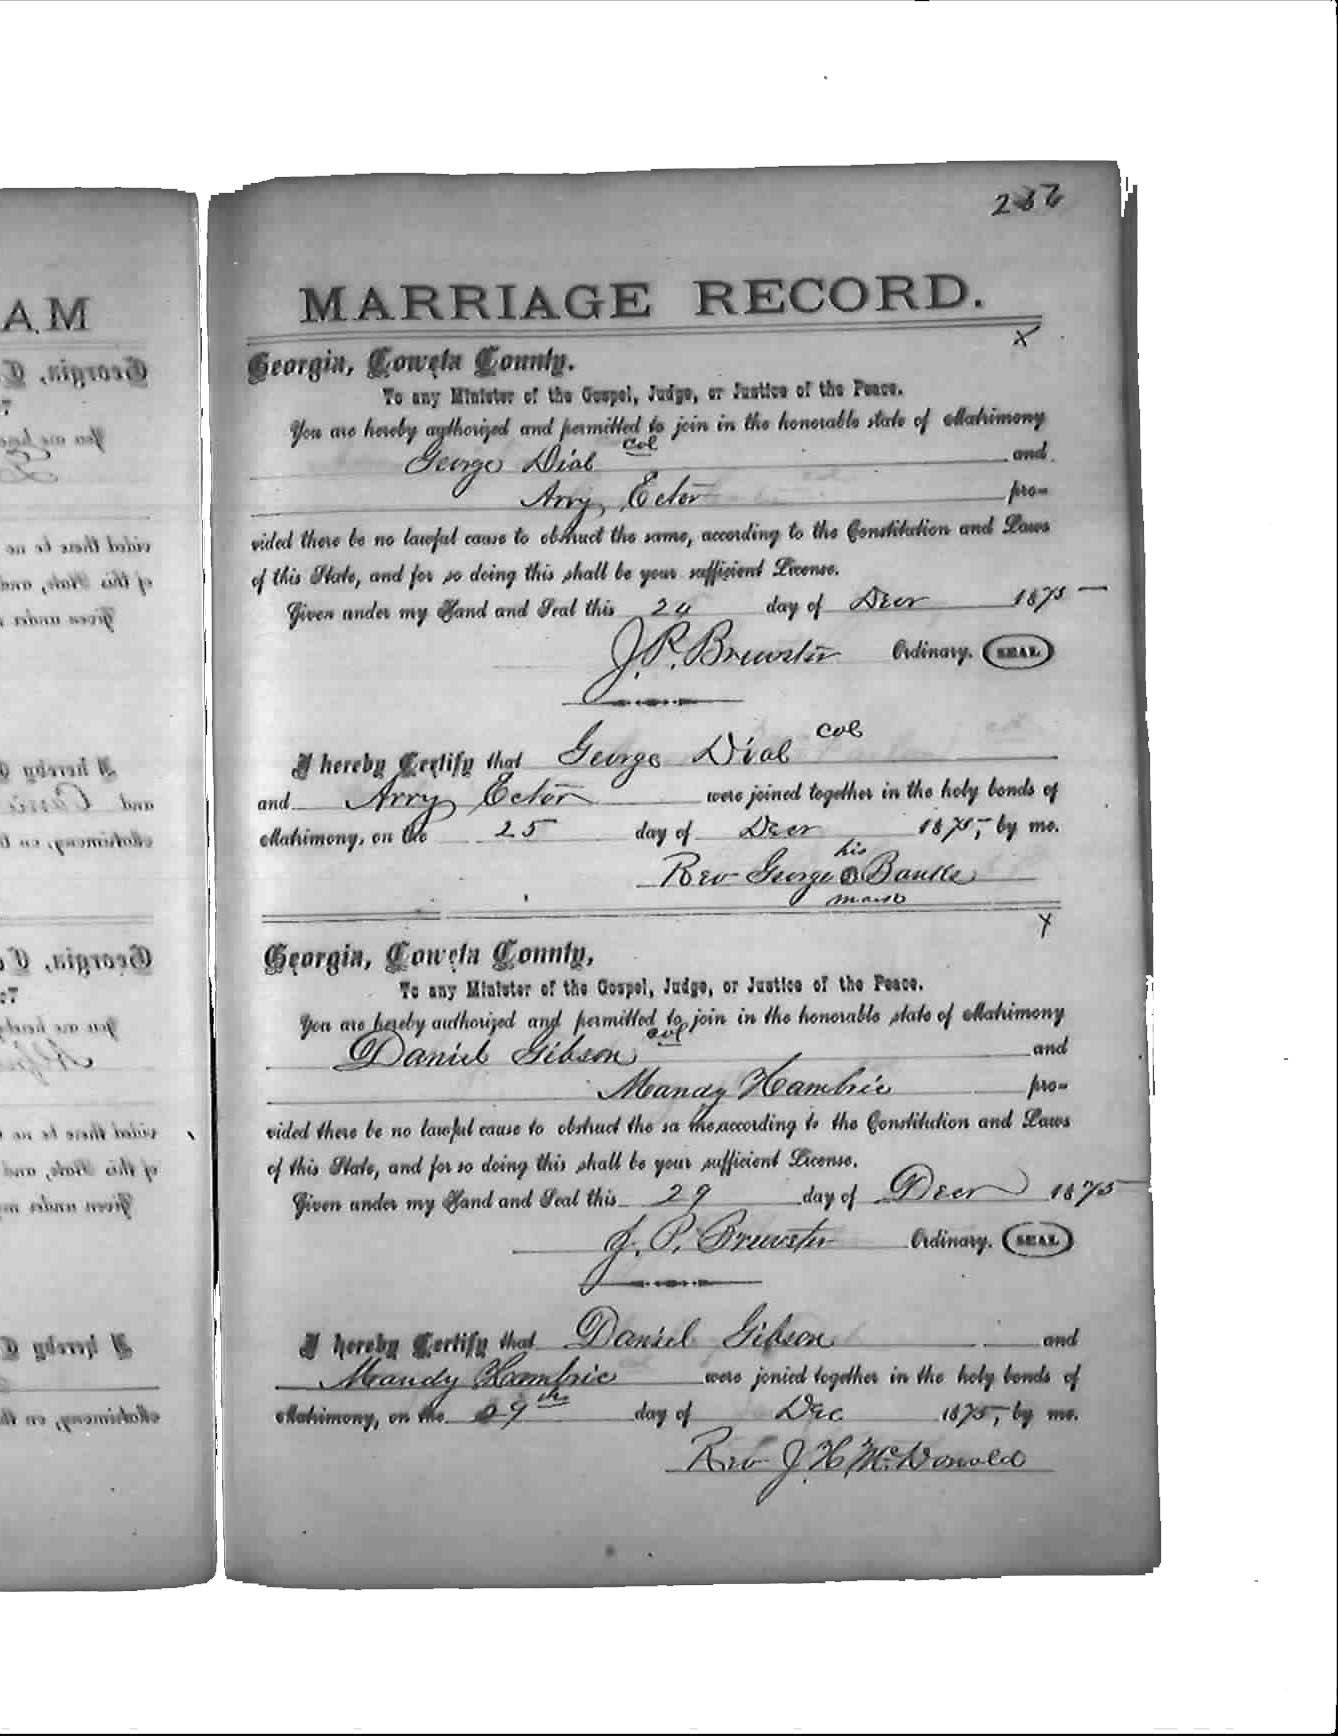 MARRIAGE RECORD.
X
Georgia, Coweta County.
To any Minister of the Gospel, Judge, or Justice of the Peace.
You are hereby authorized and permitted to join in the honorable state of Matrimony
George Dial col and
Arry Ector pro-
vided there be no lawful cause to obstruct the same, according to the Constitution and Laws
of this State, and for so doing this shall be your sufficient License.
Given under my Hand and Seal this 24 day of Decr 1875
J. P. Brewster Ordinary. SEAL
I hereby Certify that George Dial col
and Arry Ector were joined together in the holy bonds of
Matrimony, on the 25 day of Decr 1875, by me.
his
Rev George Banks
mark
X
Georgia, Coweta County,
To any Minister of the Gospel, Judge, or Justice of the Peace.
You are hereby authorized and permitted to join in the honorable state of Matrimony
Daniel Gibson col and
Mandy Hambric pro-
vided there be no lawful cause to obstruct the sa me,according to the Constitution and Laws
of this State, and for so doing this shall be your sufficient License.
Given under my Hand and Seal this 29 day of Decr 1875
J. P. Brewster Ordinary. SEAL
I hereby Certify that Daniel Gibson and
Mandy Hambric were jonied together in the holy bonds of
Matrimony, on the 29th day of Dec 1875, by me.
Rev J. H McDonald